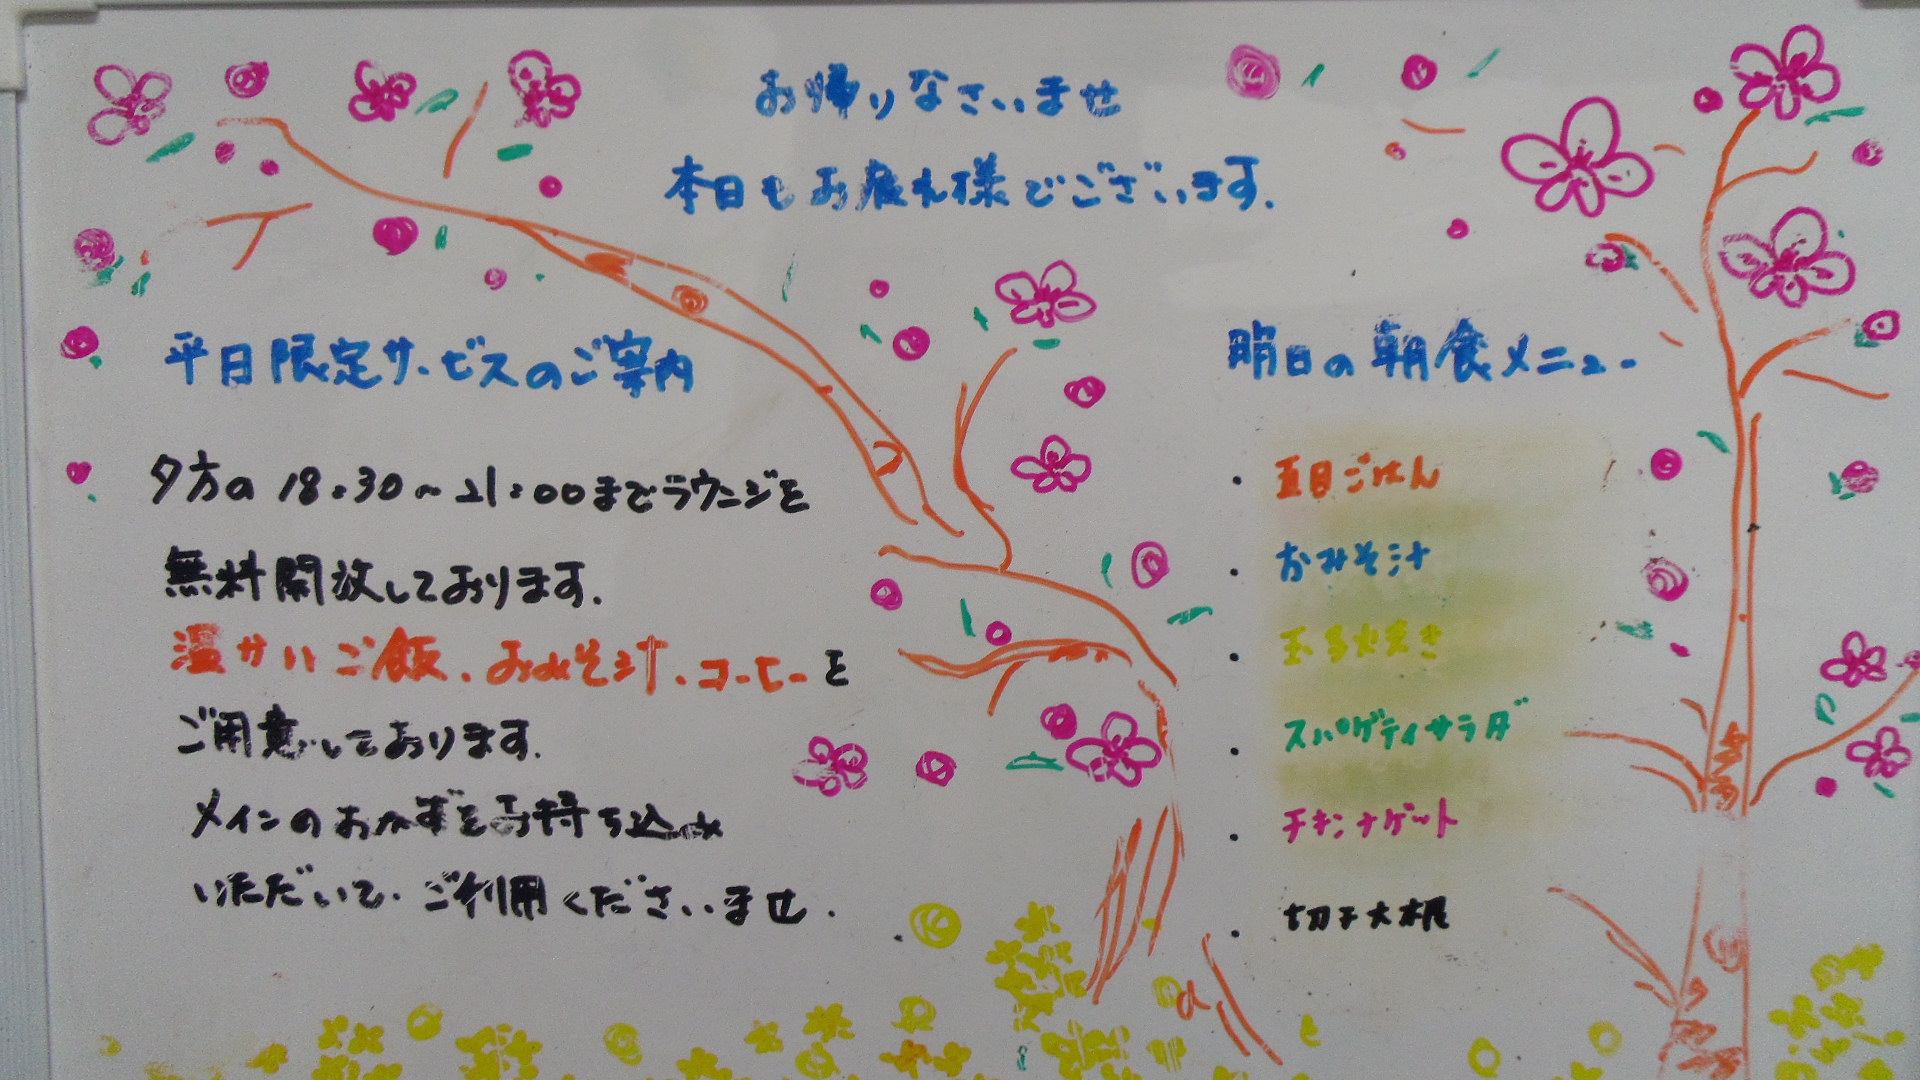 お帰りなさいませ
本日もお疲れ様でございます.
平日限定サービスのご案内
夕方の18:30~21:00までラウンジを
無料開放しております.
温かいご飯、おみそ汁、コーヒーを
ご用意しております.
メインのおかずをお持ち込み
いただいて、ご利用くださいませ.
明日の朝食メニュー
・五目ごはん
・おみそ汁
・玉子焼き
・スパゲティサラダ
・チキンナゲット
・切干大根